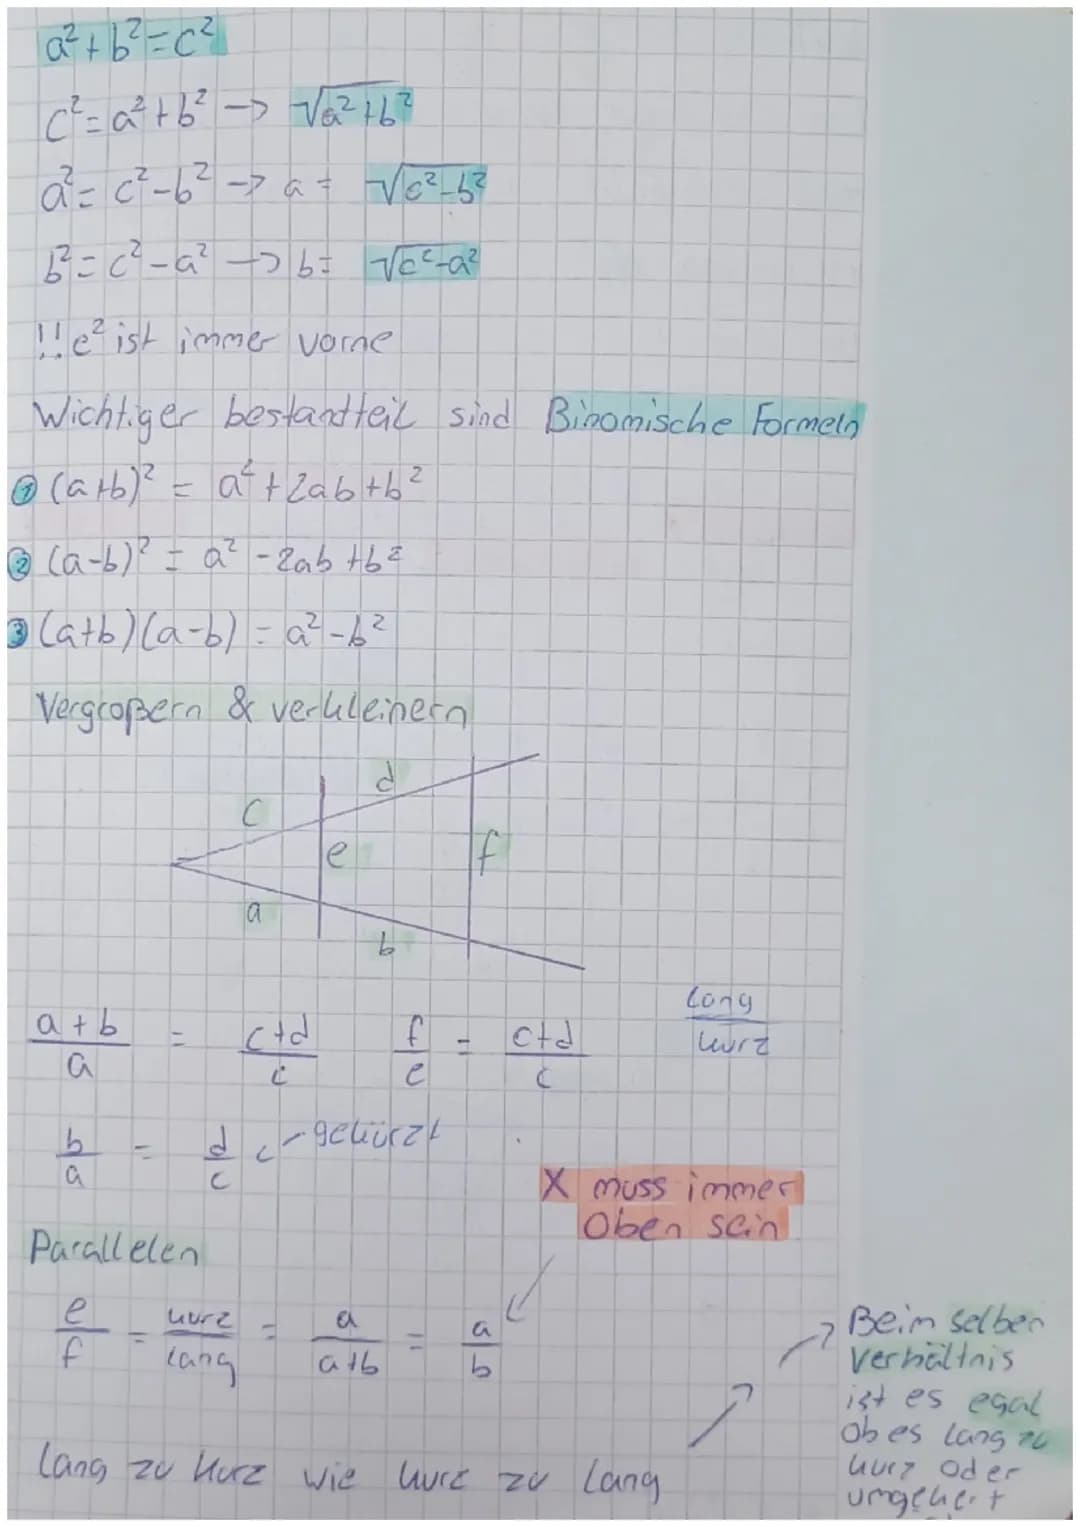 a² + b² = c²
c² = a² + b² → √a² + b²
a² = c² - b² → a = √c² - b²
b² = c² - a² → b = √c² - a²
!! c² ist immer vorne
Wichtiger bestandteil sind Binomische Formeln
① (a+b)² = a² + 2ab + b²
② (a-b)² = a² - 2ab + b²
③ (a+b)(a-b) = a² - b²
Vergroßern & verkleinern
d
c
e
f
a
b
(a+b)/a = (c+d)/c f/e = (c+d)/c lang/kurz
b/a = d/c ← gekürzt
X muss immer
Oben sein
Parallelen
e/f = kurz/lang = a/(a+b) = a/b
Lang zu Kurz wie kurz zu lang
Beim selben
Verhältnis
ist es egal
Ob es lang zu
kurz oder
umgekehrt